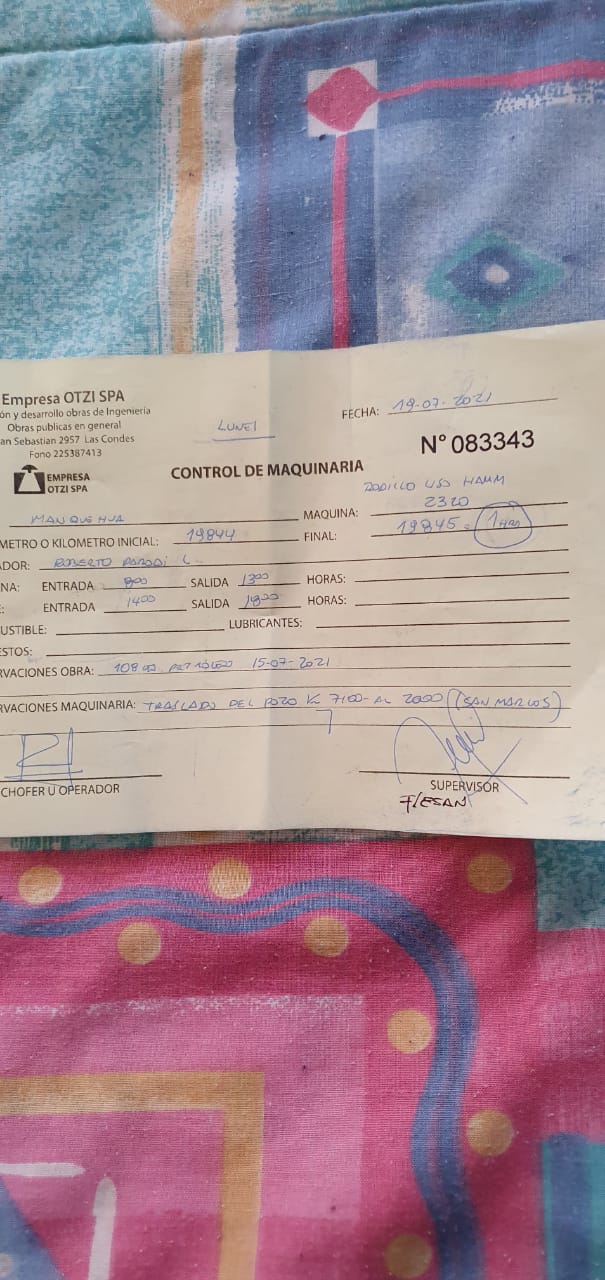 Empresa OTZI SPA
ón y desarrollo obras de Ingenieria
Obras publicas en general
an Sebastian 2957 Las Condes
Fono 225387413
EMPRESA
OTZI SPA
LUNES
FECHA: 19-07-2021
N° 083343
CONTROL DE MAQUINARIA
MANQUEHUA
MAQUINA: RODILLO USD HAMM
2320
METRO O KILOMETRO INICIAL: 19844
FINAL: 19845 = 1 HRA
ADOR: ROBERTO PARODI L.
NA: ENTRADA 800 SALIDA 1300 HORAS:
E: ENTRADA 1400 SALIDA 1800 HORAS:
USTIBLE: LUBRICANTES:
ESTOS:
RVACIONES OBRA: 108 PETROLEO 15-07-2021
RVACIONES MAQUINARIA: TRASLADO DEL POZO K 7100 - AL 2000 (SAN MARCOS)
CHOFER U OPERADOR
SUPERVISOR